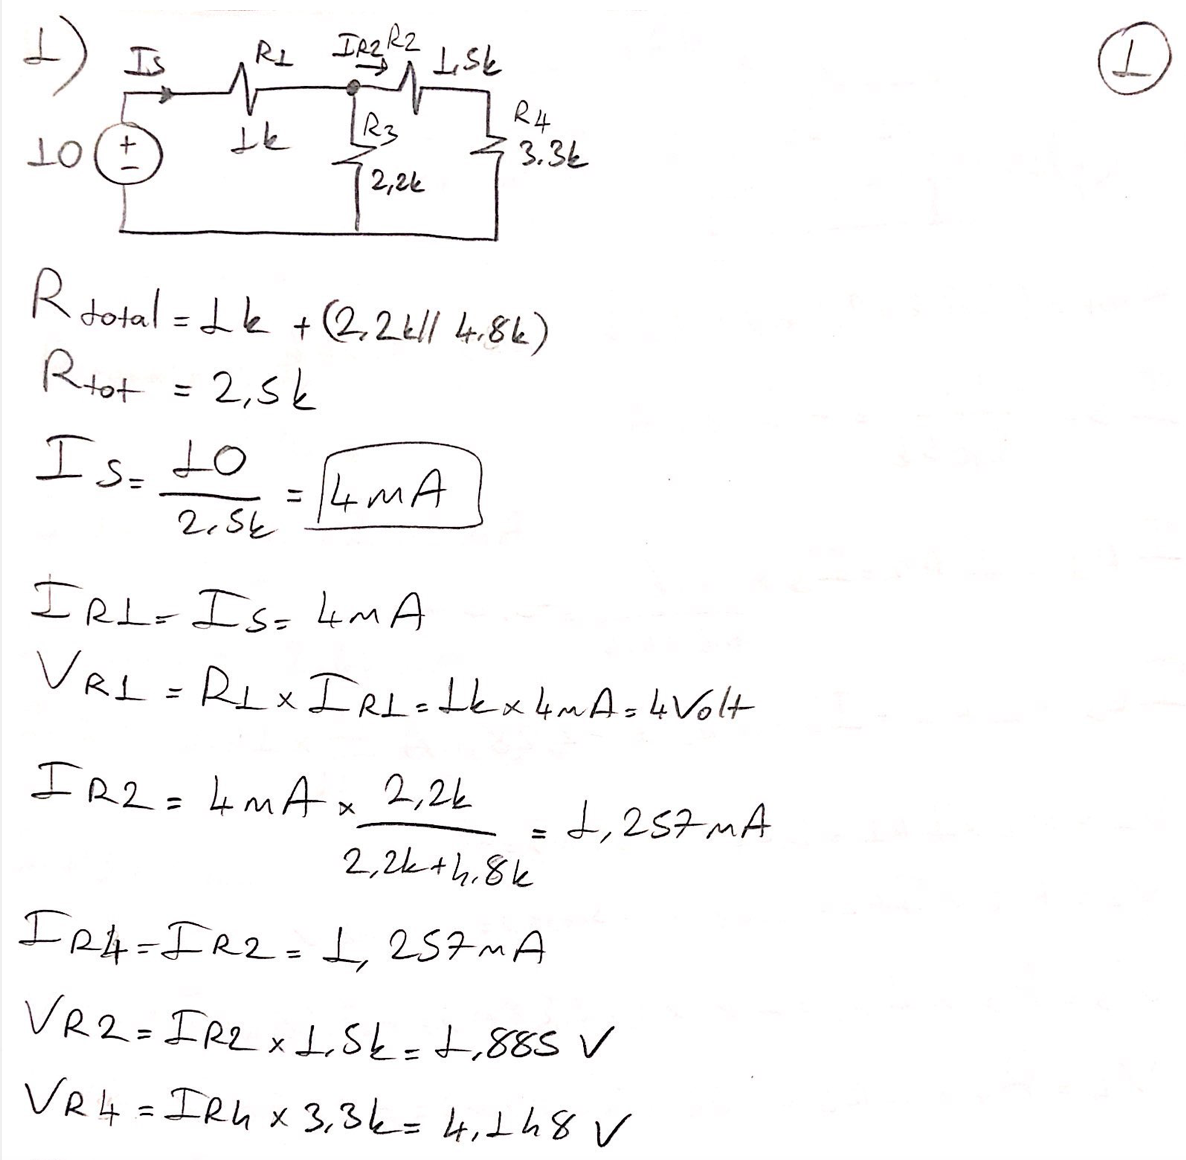 1) Is R1 IR2 R2 1,5k
①
10 + − 1k R3 2,2k R4 3.3k
Rtotal = 1k + (2,2k// 4.8k)
Rtot = 2,5k
Is = 10 / 2.5k = 4mA
IR1 = Is = 4mA
VR1 = R1 x IR1 = 1k x 4mA = 4Volt
IR2 = 4mA x 2,2k / 2,2k+4.8k = 1,257mA
IR4 = IR2 = 1,257mA
VR2 = IR2 x 1.5k = 1,885 V
VR4 = IR4 x 3,3k = 4,148 V